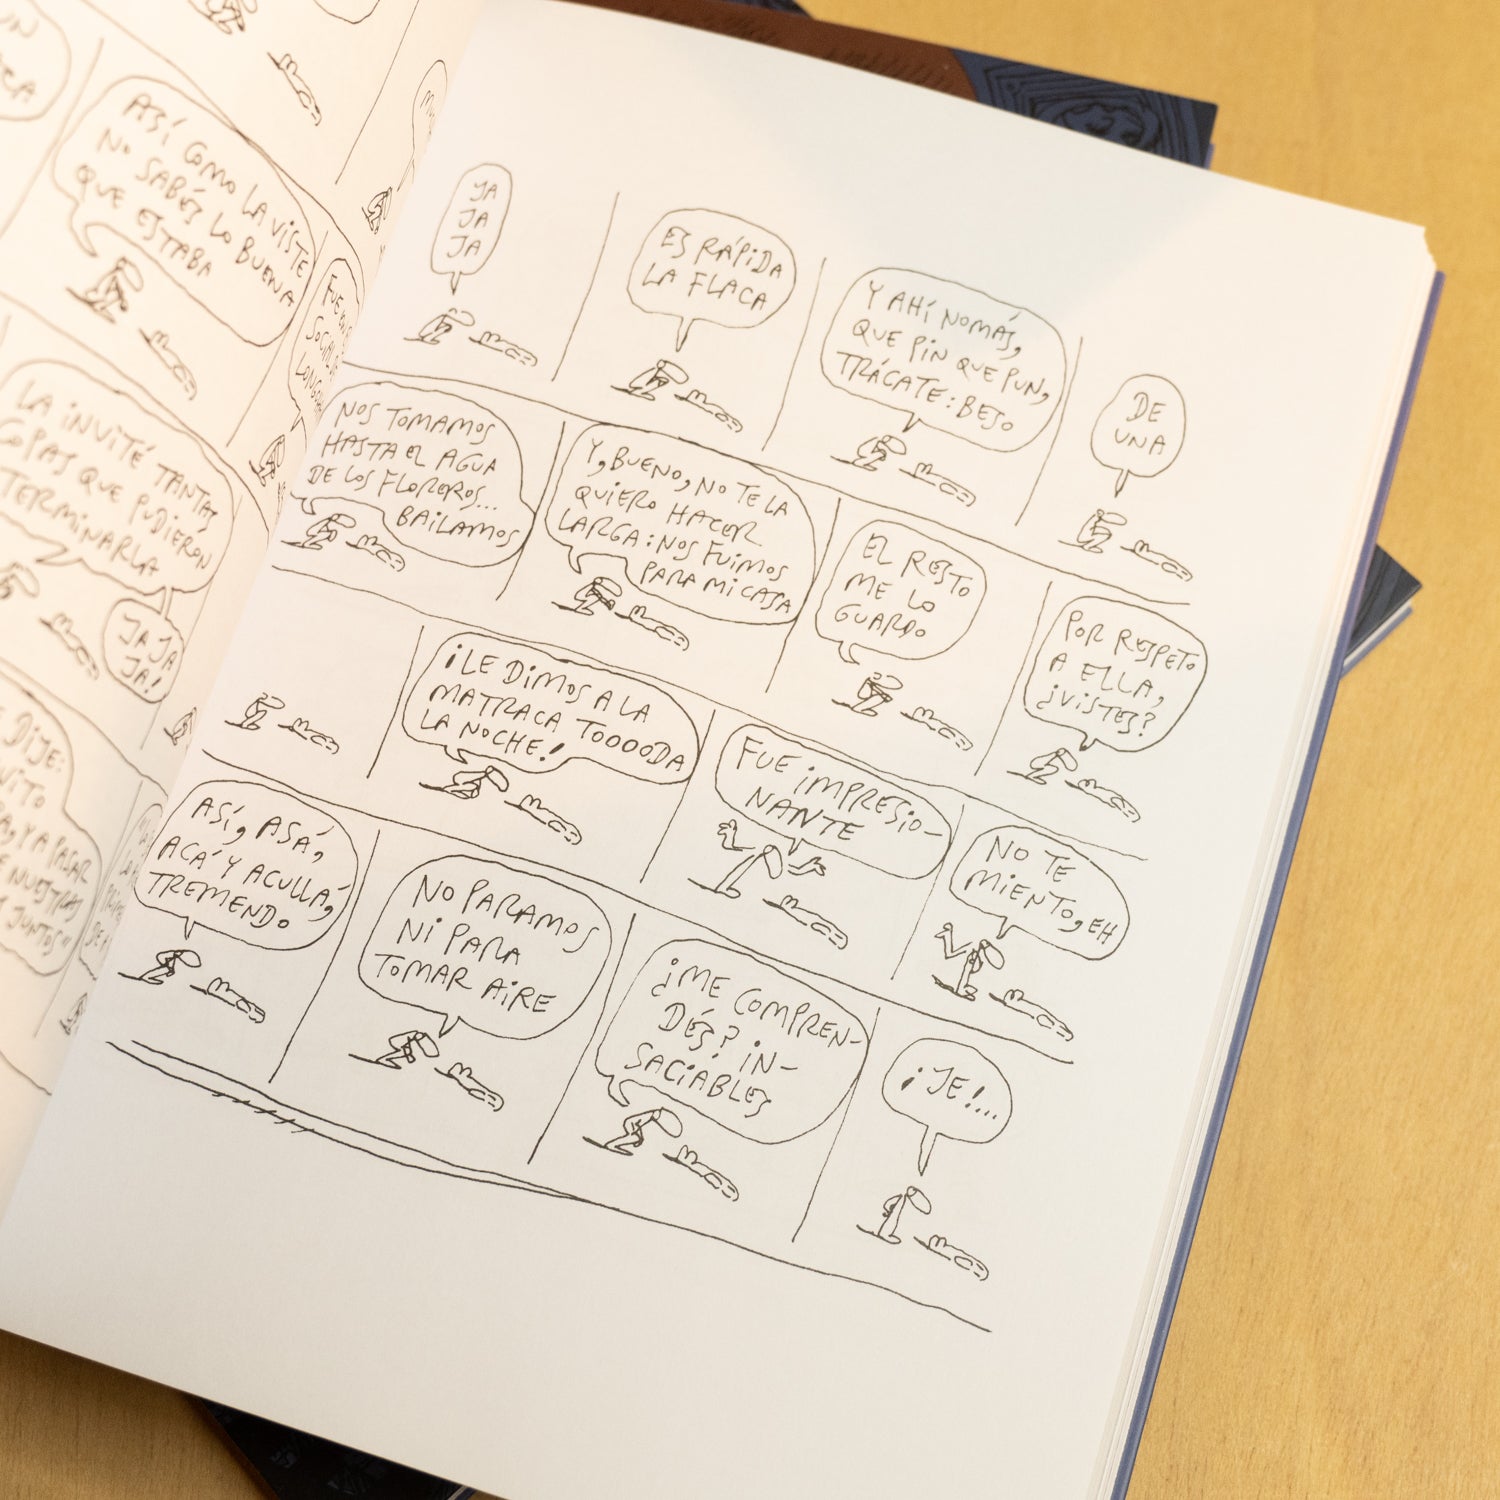 ASÍ COMO LA VISTE
NO SABÉS LO BUENA
QUE ESTABA
FUE
LA INVITÉ TANTAS
COPAS QUE PUDIERON
TERMINARLA
JA JA
JA!
DIJE:
Y A PASAR
NUESTRAS
JUNTOS"
JA
JA
JA
ES RÁPIDA
LA FLACA
Y AHÍ NOMÁS,
QUE PIN QUE PUN,
TRÁCATE: BESO
DE
UNA
NOS TOMAMOS
HASTA EL AGUA
DE LOS FLOREROS...
BAILAMOS
Y, BUENO, NO TE LA
QUIERO HACER
LARGA: NOS FUIMOS
PARA MI CASA
EL RESTO
ME LO
GUARDO
POR RESPETO
A ELLA,
¿VISTES?
¡LE DIMOS A LA
MATRACA TOOOODA
LA NOCHE!
FUE IMPRESIO-
NANTE
NO TE
MIENTO, EH
ASÍ, ASÁ,
ACÁ Y ACULLÁ,
TREMENDO
NO PARAMOS
NI PARA
TOMAR AIRE
¿ME COMPREN-
DÉS? IN-
SACIABLES
¡JE!...